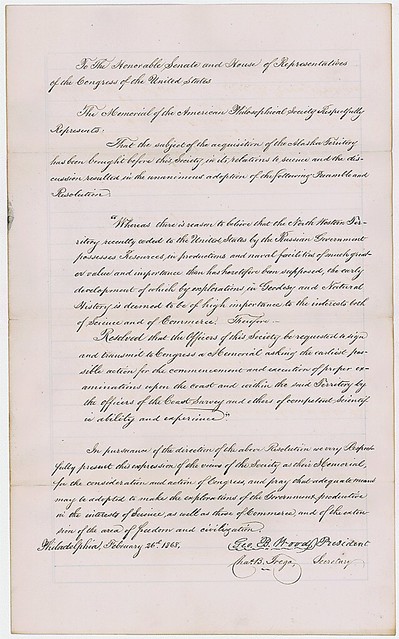 To The Honorable Senate and House of Representatives
of the Congress of the United States
The Memorial of the American Philosophical Society Respectfully
Represents:
That the subject of the acquisition of the Alaska Territory
has been brought before this Society in its relations to science and the dis-
cussion resulted in the unanimous adoption of the following Preamble and
Resolution
"Whereas there is reason to believe that the North Western Ter-
ritory recently ceded to the United States by the Russian Government
possesses Resources, in productions and naval facilities of much great-
er value and importance than has heretofore been supposed, the early
development of which by explorations in Geodesy and Natural
History is deemed to be of high importance to the interests both
of Science and of Commerce. Therefore—
Resolved that the Officers of this Society be requested to sign
and transmit to Congress a Memorial asking the earliest pos-
sible action for the commencement and execution of proper ex-
aminations upon the coast and within the said Territory by
the officers of the Coast Survey and others of competent Scientif-
ic ability and experience"
In pursuance of the direction of the above Resolution we very Respect-
fully present this expression of the views of the Society as their Memorial,
for the consideration and action of Congress, and pray that adequate means
may be adopted to make the explorations of the Government, productive
in the interests of Science, as well as those of Commerce and of the exten-
sion of the area of freedom and civilization.
Philadelphia, February 26th 1868,
Geo. B. Wood, President
Chas. B. Secretary